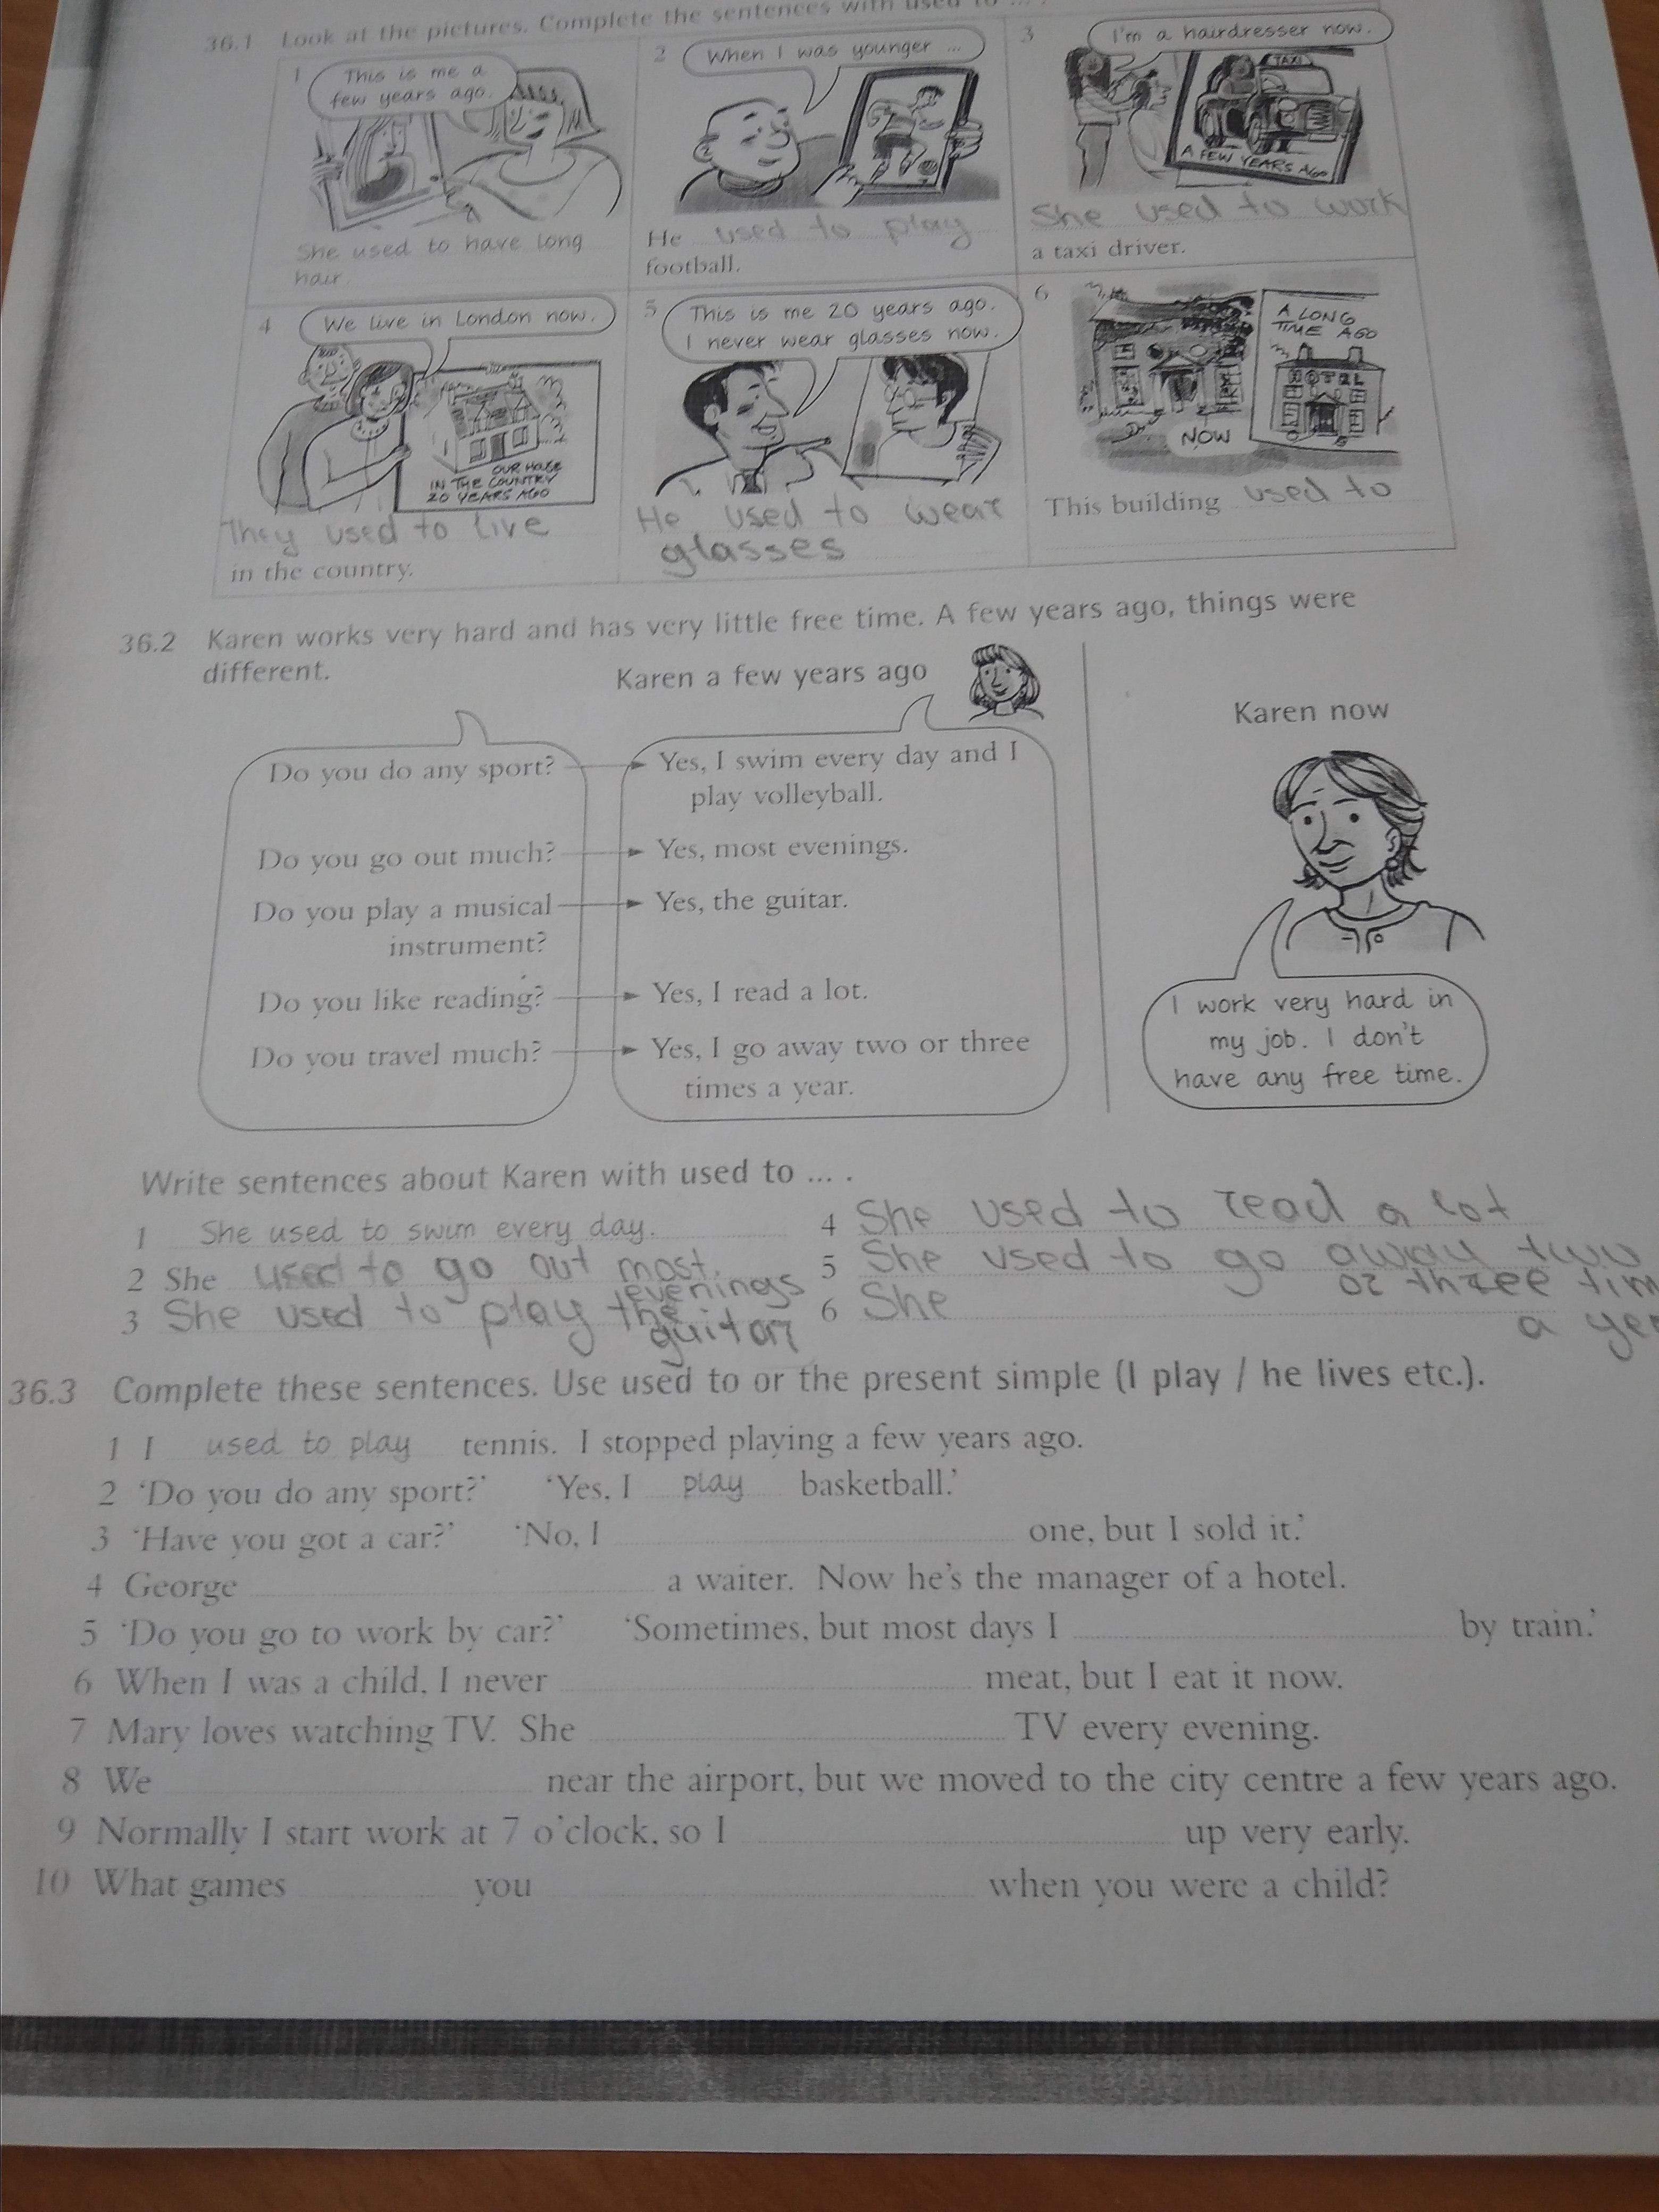 36.1 Look at the pictures. Complete the sentences with used to ... .
1 This is me a
few years ago.
She used to have long
hair.
2 When I was younger ...
He used to play
football.
3 I'm a hairdresser now.
TAXI
A FEW YEARS AGO
She used to work
a taxi driver.
4 We live in London now.
OUR HOUSE
IN THE COUNTRY
20 YEARS AGO
They used to live
in the country.
5 This is me 20 years ago.
I never wear glasses now.
He used to wear
glasses
6 A LONG
TIME AGO
HOTEL
NOW
This building used to
36.2 Karen works very hard and has very little free time. A few years ago, things were
different.
Karen a few years ago
Karen now
Do you do any sport? Yes, I swim every day and I
play volleyball.
Do you go out much? Yes, most evenings.
Do you play a musical Yes, the guitar.
instrument?
Do you like reading? Yes, I read a lot.
Do you travel much? Yes, I go away two or three
times a year.
I work very hard in
my job. I don't
have any free time.
Write sentences about Karen with used to ... .
1 She used to swim every day.
2 She used to go out most
evenings
3 She used to play the
guitar
4 She used to read a lot
5 She used to go away two
or three tim
a yer
6 She
36.3 Complete these sentences. Use used to or the present simple (I play / he lives etc.).
1 I used to play tennis. I stopped playing a few years ago.
2 ‘Do you do any sport?’ ‘Yes, I play basketball.’
3 ‘Have you got a car?’ ‘No, I one, but I sold it.’
4 George a waiter. Now he’s the manager of a hotel.
5 ‘Do you go to work by car?’ ‘Sometimes, but most days I by train.’
6 When I was a child, I never meat, but I eat it now.
7 Mary loves watching TV. She TV every evening.
8 We near the airport, but we moved to the city centre a few years ago.
9 Normally I start work at 7 o’clock, so I up very early.
10 What games you when you were a child?